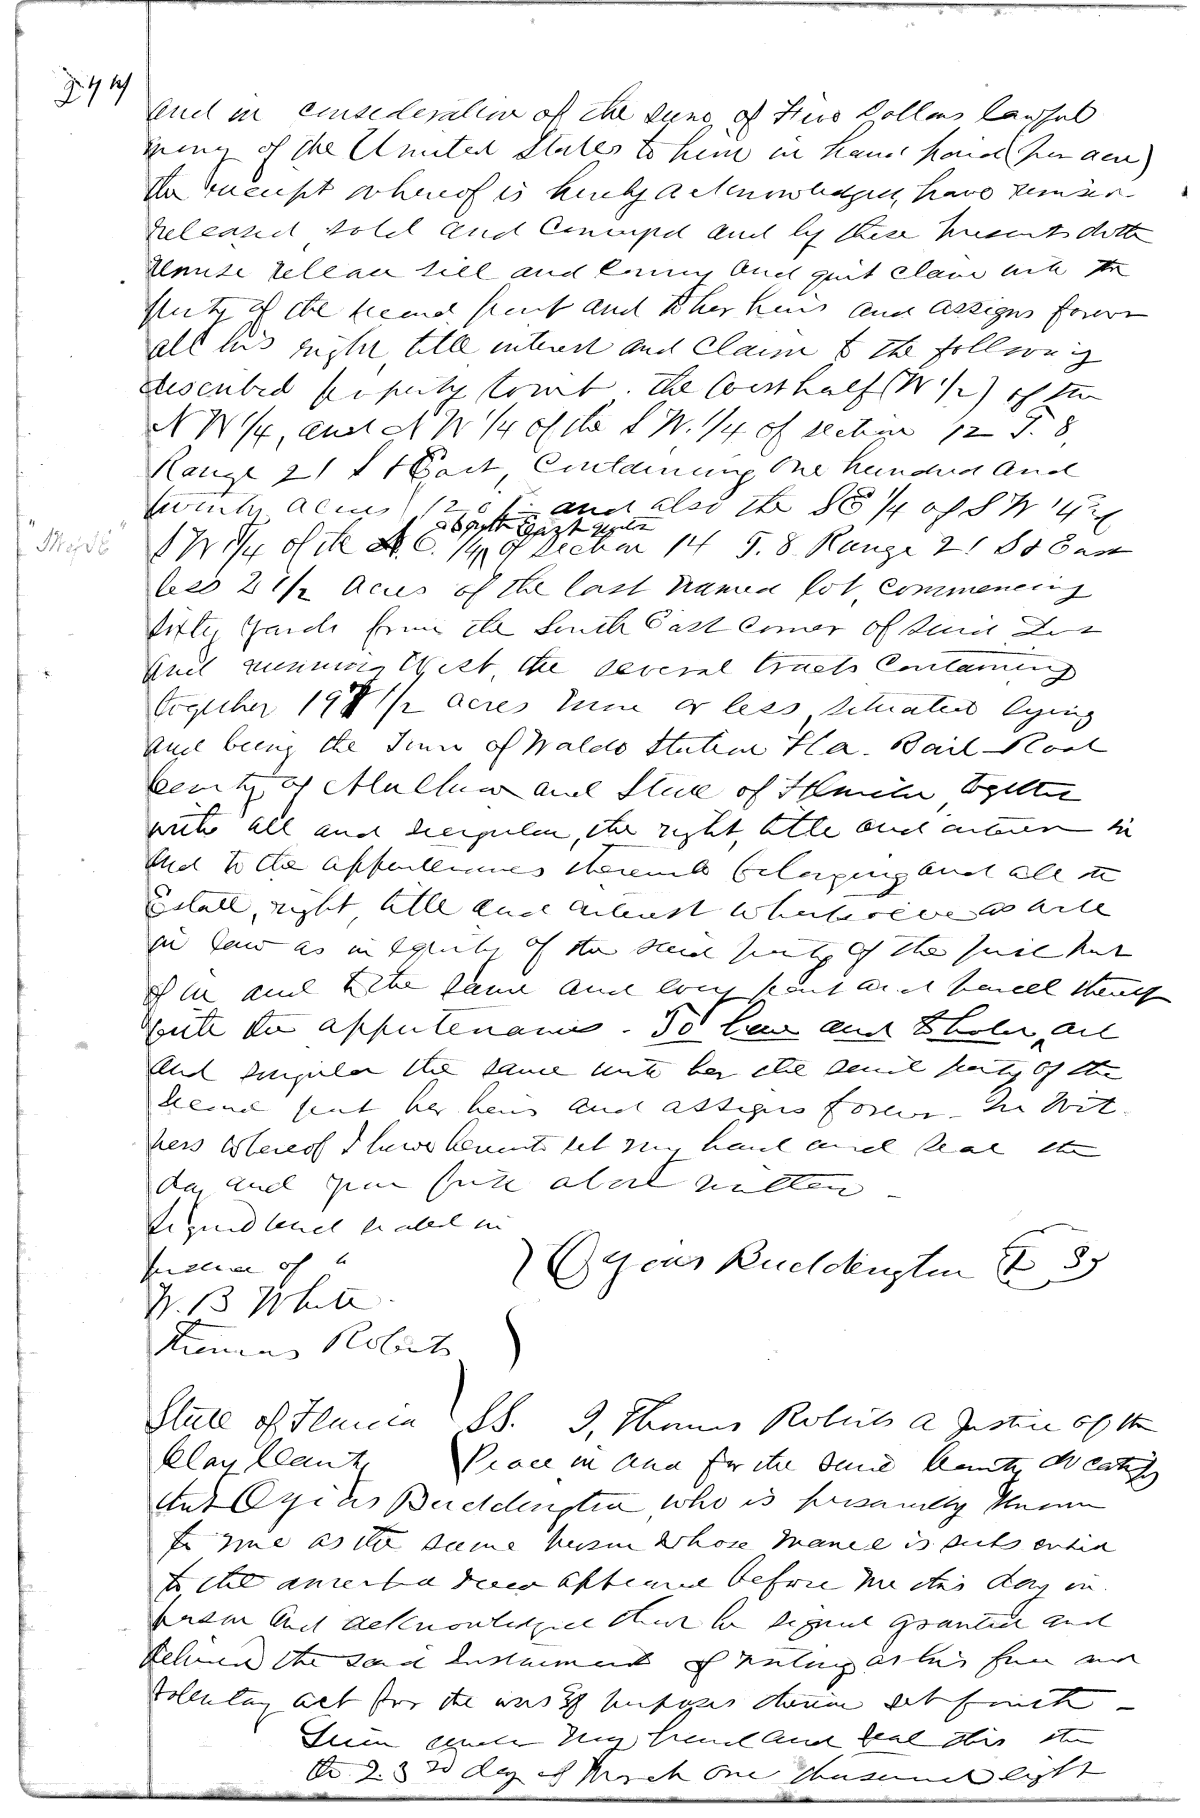 and in consideration of the sum of Five Dollars lawful
money of the United States to him in hand paid (per acre)
the receipt whereof is hereby acknowledged, have remised
released, sold and conveyed and by these presents doth
remise release sell and convey and quit claim unto the
party of the second part and to her heirs and assigns forever
all his right, title interest and claim to the following
described property towit. the West half (W 1/2) of the
N W 1/4, and N W 1/4 of the S W. 1/4 of section 12 T. 8,
Range 21 S & East, Containing One hundred and
twenty acres, and also the SE 1/4 of S W 1/4
"SW of SE"
South East quarter
S W 1/4 of the of section 14 T. 8 Range 21 S & East
less 2 1/2 acres of the last named lot, commencing
sixty yards from the South East corner of said Lot
and running West, the several tracts containing
together 197 1/2 acres more or less, situated lying
and being the Town of Waldo Station Fla. Rail Road
County of Alachua and State of Florida, together
with all and singular, the right, title and interest in
and to the appurtenances thereunto belonging and all the
Estate, right, title and interest whatsoever as well
in law as in equity of the said party of the first part
of in and to the same and every part and parcel thereof
with the appurtenances. To have and to hold, all
and singular the same unto her the said party of the
second part her heirs and assigns forever. In Wit-
ness whereof I have hereunto set my hand and seal the
day and year first above written -
Signed and sealed in
presence of "
Ozias Buddington L S
W. B White.
Thomas Roberts
State of Florida SS. I, Thomas Roberts a Justice of the
Clay County Peace in and for the said County do certify
that Ozias Buddington, who is personally known
to me as the same person whose name is subscribed
to the annexed deed appeared before me this day in
person and acknowledged that he signed granted and
delivered the said Instrument of writing as his free and
volentary act for the uses & purposes therein set forth -
Given under my hand and seal this the
the 23rd day of March One thousand eight